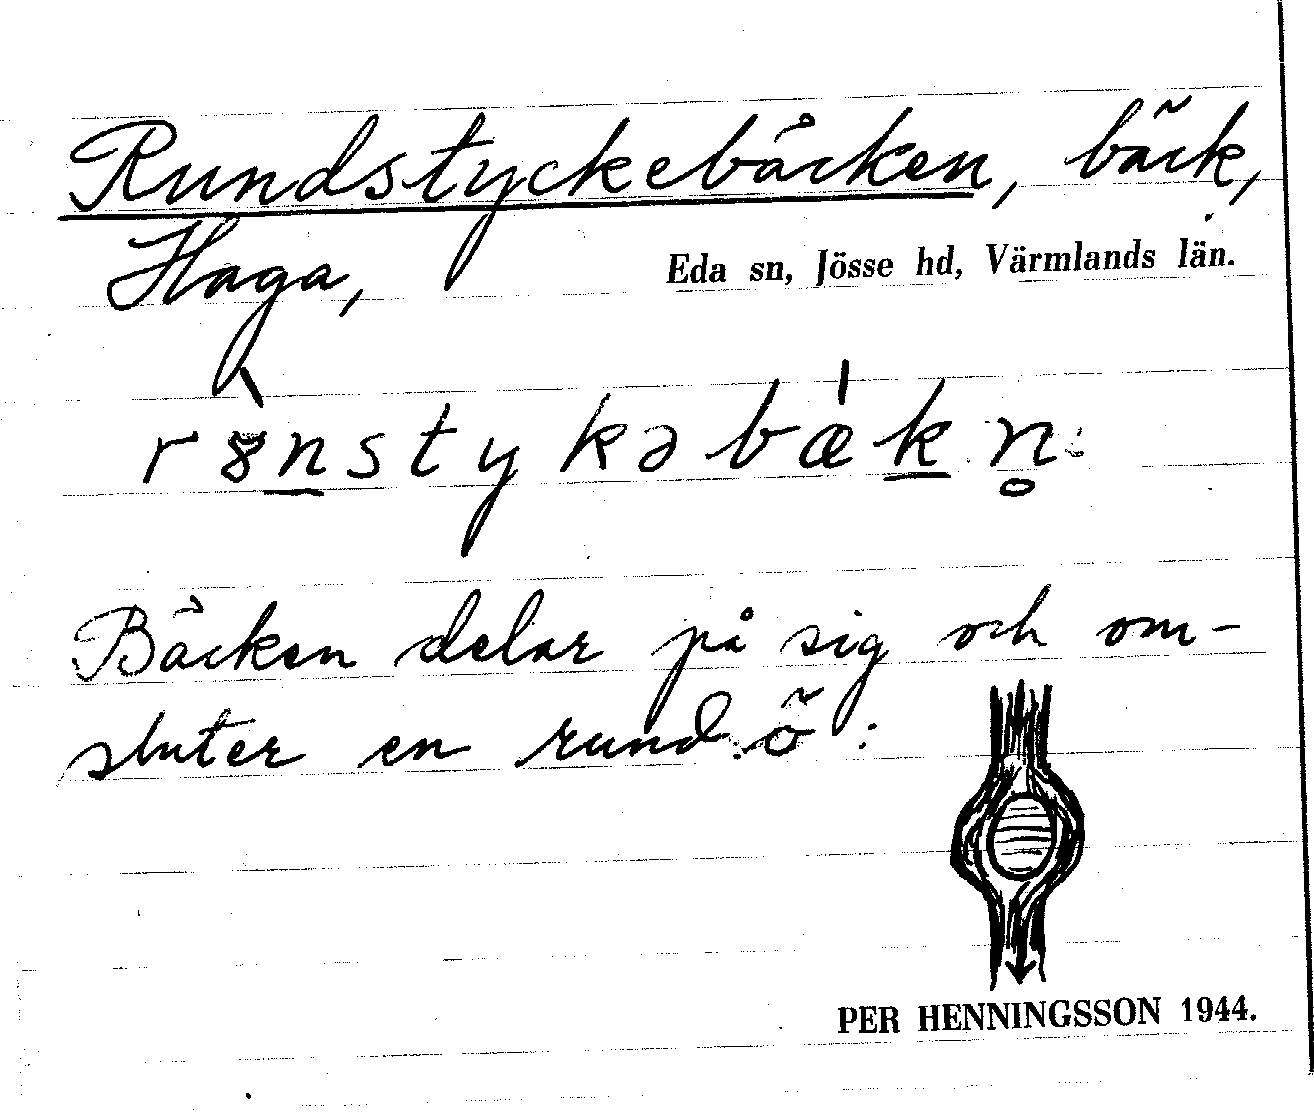 Rundstyckebäcken, bäck,
Haga,
Eda sn, Jösse hd, Värmlands län.
r8̀n̲stykəbǽk̲n̥:
Bäcken delar på sig och om-
sluter en rund ö:
PER HENNINGSSON 1944.